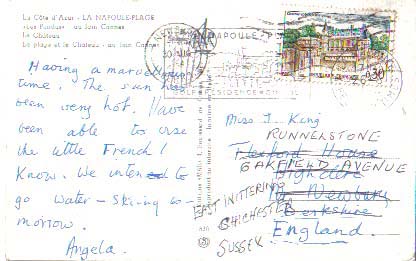 La Côte d'Azur - LA NAPOULE-PLAGE
au loin Cannes
Le Château
La plage et le Château - au loin Cannes
Having a marvellous
time. The sun has
been very hot. Have
been able to use
the little French I
know. We intend to
go water-skiing to-
morrow.
Angela.
NAPOULE-P
0,30
Miss J. King
RUNNELSTONE
Flexford House
OAKFIELD AVENUE
Highclere
Nr Newbury
Berkshire
England.
EAST WITTERING
CHICHESTER
SUSSEX